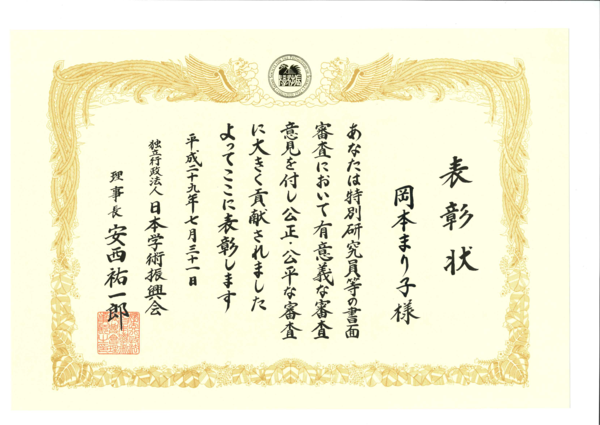 表彰状
岡本まり子様
あなたは特別研究員等の書面
審査において有意義な審査
意見を付し公正・公平な審査
に大きく貢献されました
よってここに表彰します
平成二十九年七月三十一日
独立行政法人日本学術振興会
理事長 安西祐一郎